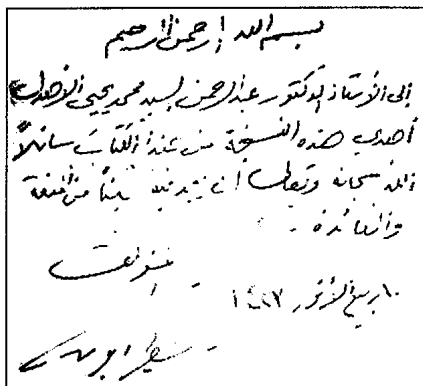 بسم الله الرحمن الرحيم
إلى الأستاذ الدكتور عبد الرحمن السيد محمد يحيى الأهدل
أهدي هذه النسخة من هذا الكتاب سائلاً
الله سبحانه وتعالى أن
والفائدة .
المؤلف
١٠ ربيع الأنور ١٤٢٧